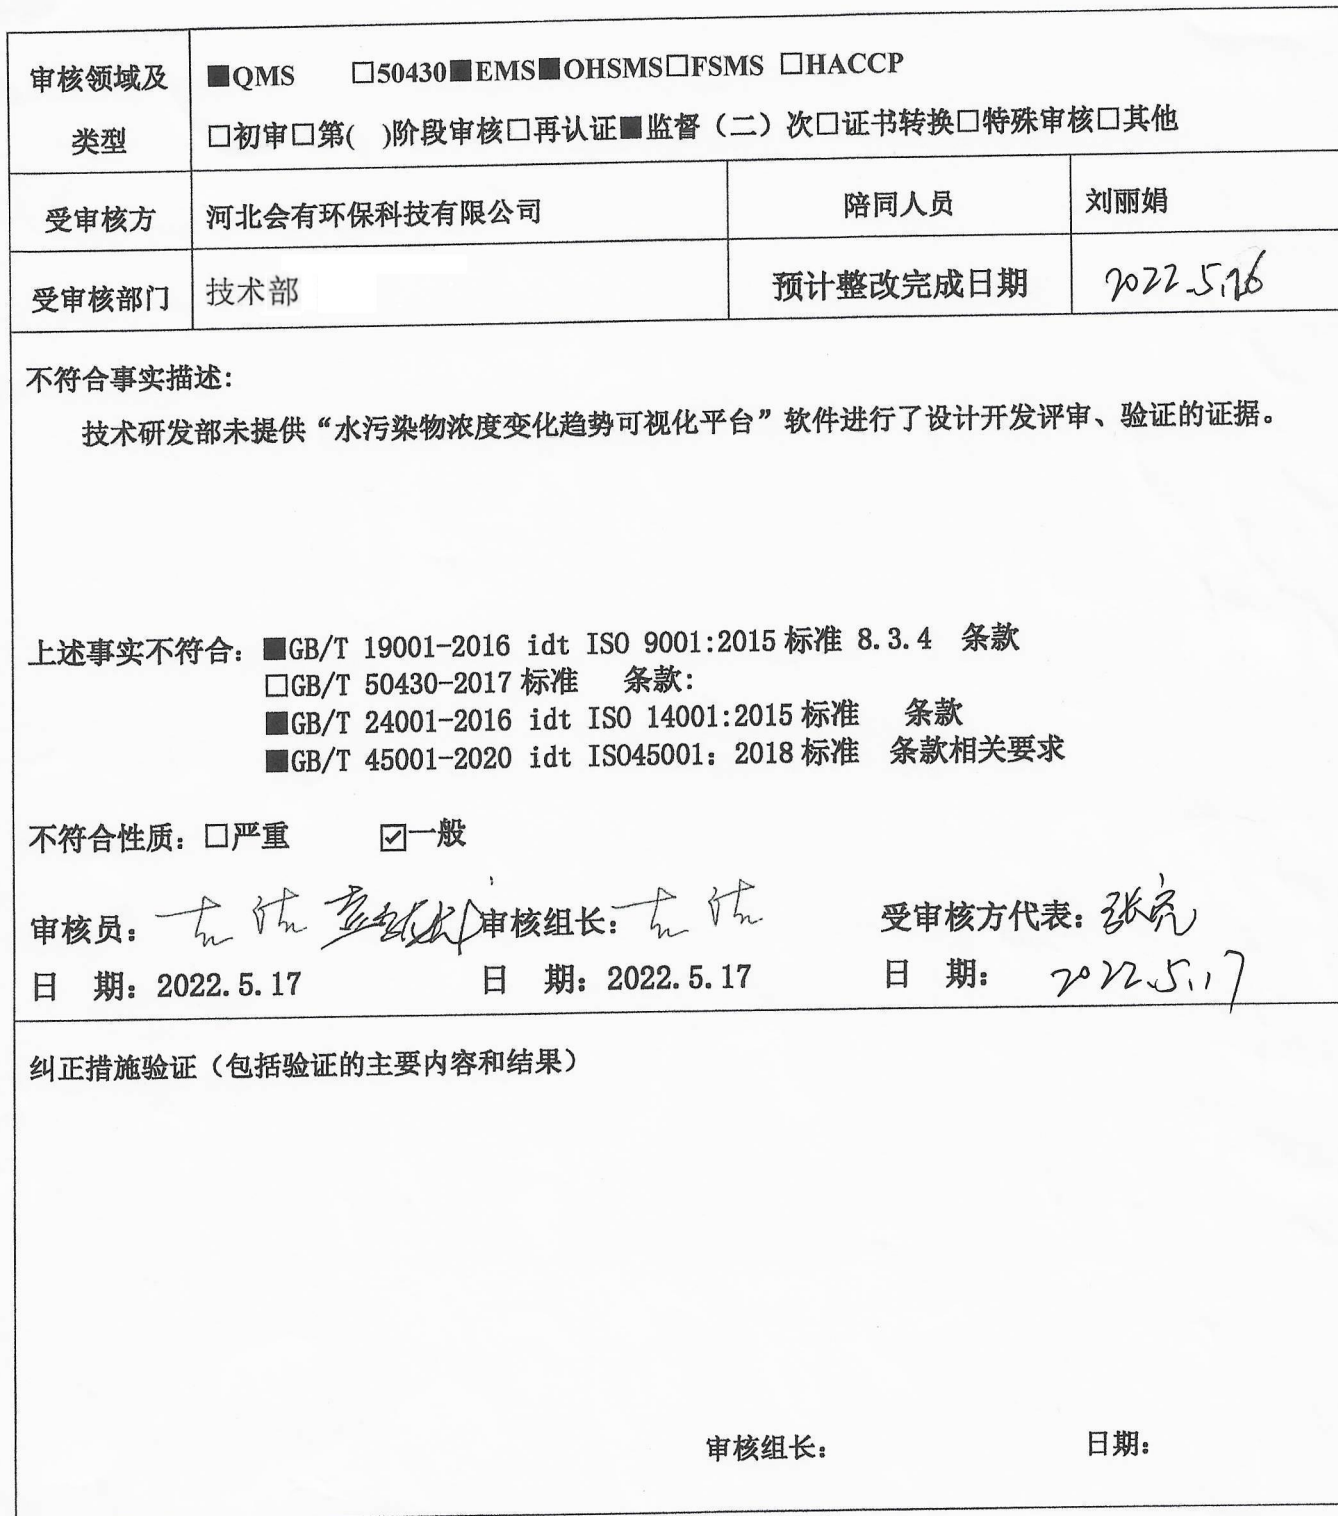 审核领域及
类型
■QMS □50430■EMS■OHSMS□FSMS □HACCP
□初审□第( )阶段审核□再认证■监督（二）次□证书转换□特殊审核□其他
受审核方
河北会有环保科技有限公司
陪同人员
刘丽娟
受审核部门
技术部
预计整改完成日期
2022.5.26
不符合事实描述:
技术研发部未提供“水污染物浓度变化趋势可视化平台”软件进行了设计开发评审、验证的证据。
上述事实不符合: ■GB/T 19001-2016 idt ISO 9001:2015 标准 8.3.4 条款
□GB/T 50430-2017 标准 条款:
■GB/T 24001-2016 idt ISO 14001:2015 标准 条款
■GB/T 45001-2020 idt ISO45001: 2018 标准 条款相关要求
不符合性质: □严重 ☑一般
审核员: 审核组长: 受审核方代表: 张亮
日 期: 2022.5.17 日 期: 2022.5.17 日 期: 2022.5.17
纠正措施验证（包括验证的主要内容和结果）
审核组长: 日期: